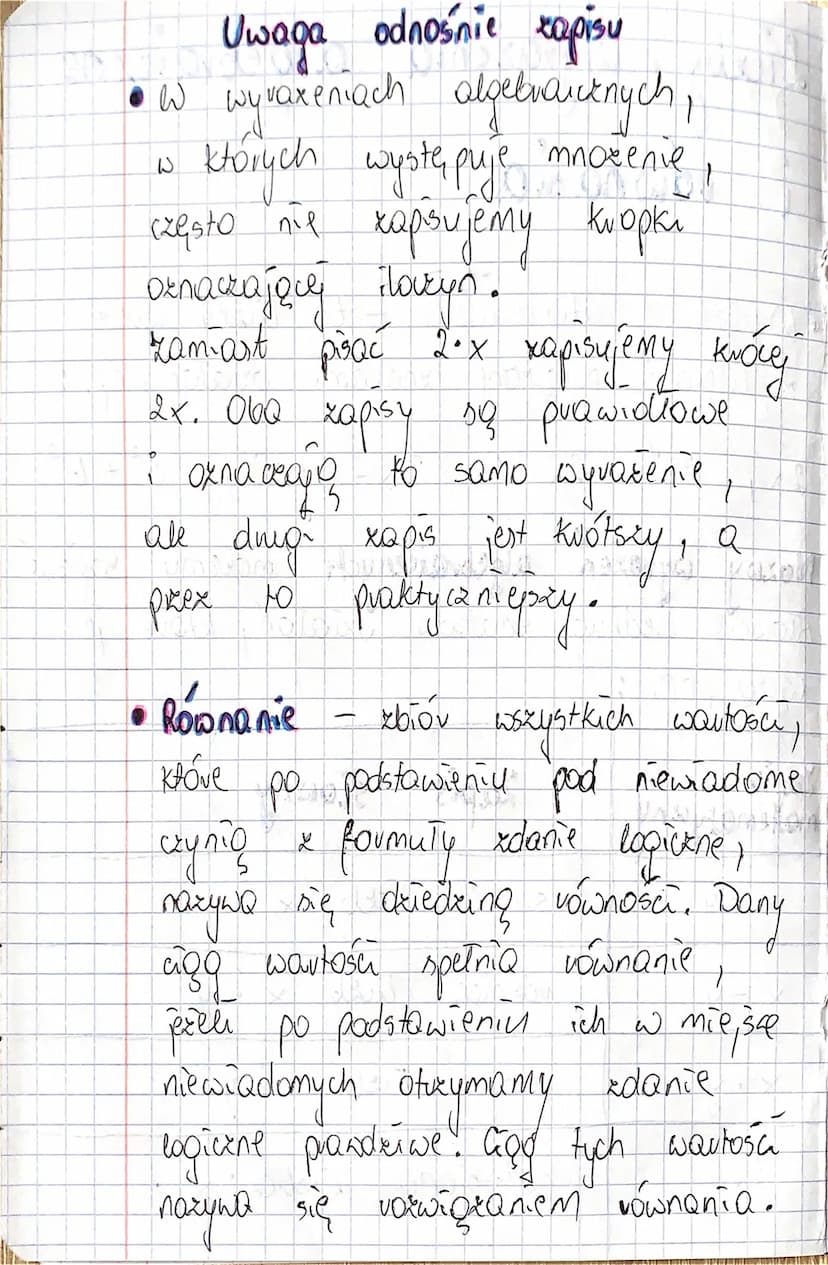 Uwaga odnośnie zapisu
• W wyrażeniach algebraicznych,
w których występuje mnożenie,
często nie zapisujemy kropki
oznaczającej iloczyn.
zamiast pisać 2·x zapisujemy krócej
2x. Oba zapisy są prawidłowe
i oznaczają to samo wyrażenie,
ale drugi zapis jest krótszy, a
przez to praktyczniejszy.
• Równanie – zbiór wszystkich wartości,
które po podstawieniu pod niewiadome
czynią z formuły zdanie logiczne,
nazywa się dziedziną równości. Dany
ciąg wartości spełnia równanie,
jeżeli po podstawieniu ich w miejsce
niewiadomych otrzymamy zdanie
logiczne prawdziwe. Ciąg tych wartości
nazywa się rozwiązaniem równania.